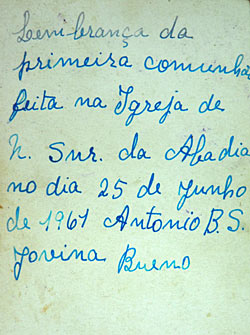 Lembrança da
primeira comunhão
feita na Igreja de
N. Snr. da Abadia
no dia 25 de Junho
de 1961 Antonio B.S.
Jovina Bueno